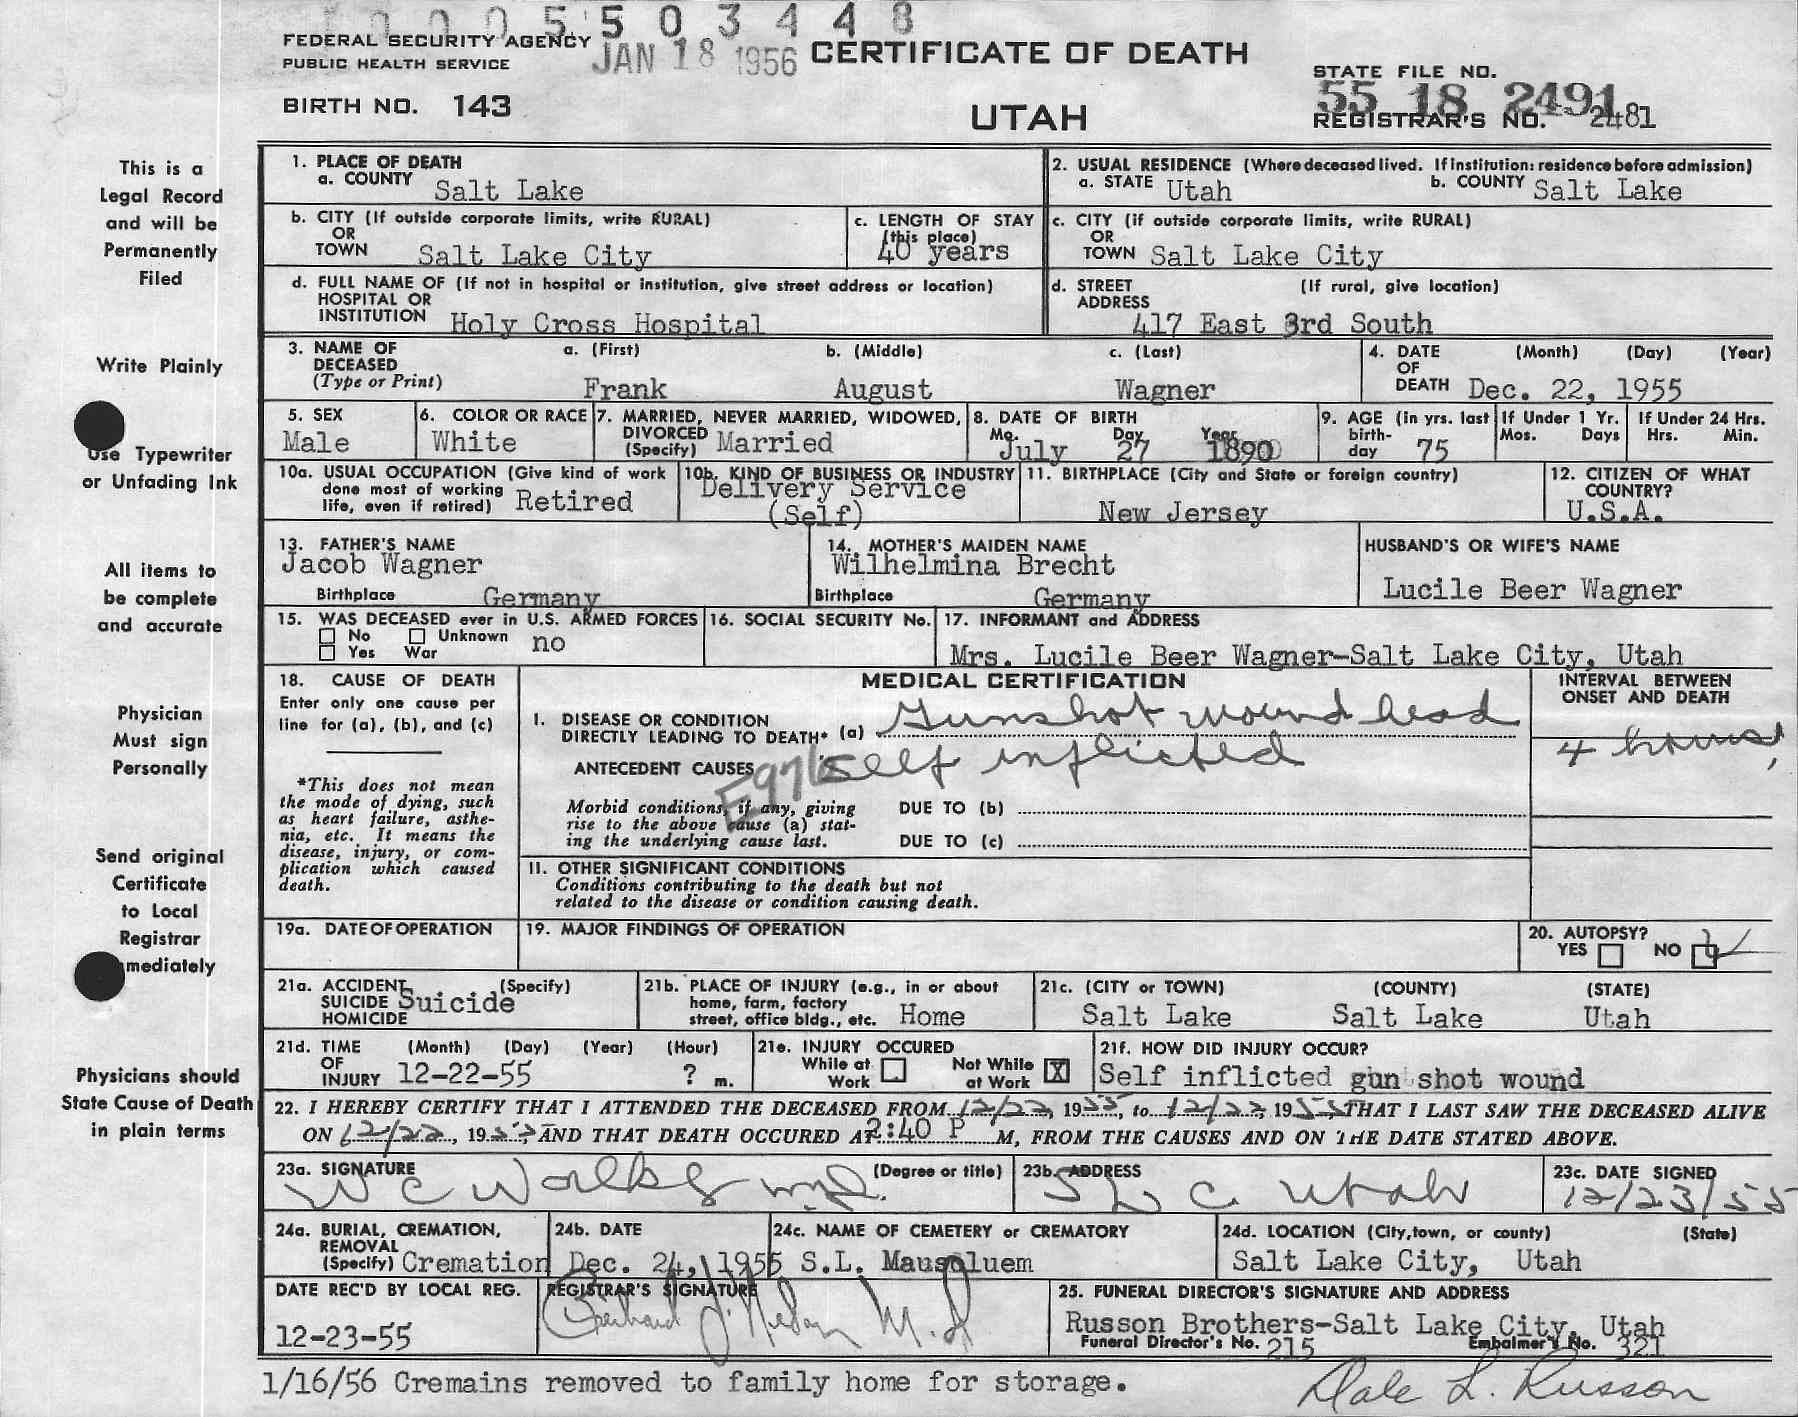 0 0 0 5 5 0 3 4 4 8
FEDERAL SECURITY AGENCY
PUBLIC HEALTH SERVICE
JAN 18 1956
CERTIFICATE OF DEATH
STATE FILE NO.
55 18 2491
BIRTH NO. 143
UTAH
REGISTRAR'S NO. 2481
This is a
Legal Record
and will be
Permanently
Filed
Write Plainly
Use Typewriter
or Unfading Ink
All items to
be complete
and accurate
Physician
Must sign
Personally
Send original
Certificate
to Local
Registrar
mmediately
Physicians should
State Cause of Death
in plain terms
1. PLACE OF DEATH
a. COUNTY Salt Lake
2. USUAL RESIDENCE (Where deceased lived. If institution: residence before admission)
a. STATE Utah b. COUNTY Salt Lake
b. CITY (If outside corporate limits, write RURAL)
OR
TOWN Salt Lake City
c. LENGTH OF STAY
(this place)
40 years
c. CITY (if outside corporate limits, write RURAL)
OR
TOWN Salt Lake City
d. FULL NAME OF (If not in hospital or institution, give street address or location)
HOSPITAL OR
INSTITUTION Holy Cross Hospital
d. STREET (If rural, give location)
ADDRESS
417 East 3rd South
3. NAME OF a. (First) b. (Middle) c. (Last)
DECEASED
(Type or Print) Frank August Wagner
4. DATE (Month) (Day) (Year)
OF
DEATH Dec. 22, 1955
5. SEX
Male
6. COLOR OR RACE
White
7. MARRIED, NEVER MARRIED, WIDOWED,
DIVORCED
(Specify) Married
8. DATE OF BIRTH
Mo. Day Year
July 27 1890
9. AGE (in yrs. last
birth-
day 75
If Under 1 Yr.
Mos. Days
If Under 24 Hrs.
Hrs. Min.
10a. USUAL OCCUPATION (Give kind of work
done most of working
life, even if retired) Retired
10b. KIND OF BUSINESS OR INDUSTRY
Delivery Service
(Self)
11. BIRTHPLACE (City and State or foreign country)
New Jersey
12. CITIZEN OF WHAT
COUNTRY?
U.S.A.
13. FATHER'S NAME
Jacob Wagner
Birthplace Germany
14. MOTHER'S MAIDEN NAME
Wilhelmina Brecht
Birthplace Germany
HUSBAND'S OR WIFE'S NAME
Lucile Beer Wagner
15. WAS DECEASED ever in U.S. ARMED FORCES
No Unknown no
Yes War
16. SOCIAL SECURITY No.
17. INFORMANT and ADDRESS
Mrs. Lucile Beer Wagner-Salt Lake City, Utah
18. CAUSE OF DEATH
Enter only one cause per
line for (a), (b), and (c)
*This does not mean
the mode of dying, such
as heart failure, asthe-
nia, etc. It means the
disease, injury, or com-
plication which caused
death.
MEDICAL CERTIFICATION
INTERVAL BETWEEN
ONSET AND DEATH
I. DISEASE OR CONDITION
DIRECTLY LEADING TO DEATH* (a) Gunshot wound head
4 hours
ANTECEDENT CAUSES self inflicted
Morbid conditions, if any, giving
rise to the above cause (a) stat-
ing the underlying cause last.
DUE TO (b)
DUE TO (c)
11. OTHER SIGNIFICANT CONDITIONS
Conditions contributing to the death but not
related to the disease or condition causing death.
19a. DATE OF OPERATION
19. MAJOR FINDINGS OF OPERATION
20. AUTOPSY?
YES NO
21a. ACCIDENT (Specify)
SUICIDE Suicide
HOMICIDE
21b. PLACE OF INJURY (e.g., in or about
home, farm, factory
street, office bldg., etc. Home
21c. (CITY or TOWN) (COUNTY) (STATE)
Salt Lake Salt Lake Utah
21d. TIME (Month) (Day) (Year) (Hour)
OF
INJURY 12-22-55 ? m.
21e. INJURY OCCURED
While at Work Not While at Work X
21f. HOW DID INJURY OCCUR?
Self inflicted gun shot wound
22. I HEREBY CERTIFY THAT I ATTENDED THE DECEASED FROM 12/22, 1955, to 12/22, 1955 THAT I LAST SAW THE DECEASED ALIVE
ON 12/22, 1955, AND THAT DEATH OCCURED AT 2:40 P M, FROM THE CAUSES AND ON THE DATE STATED ABOVE.
23a. SIGNATURE (Degree or title)
W C M.D.
23b. ADDRESS
S L C. Utah
23c. DATE SIGNED
12/23/55
24a. BURIAL, CREMATION,
REMOVAL
(Specify) Cremation
24b. DATE
Dec. 24, 1955
24c. NAME OF CEMETERY or CREMATORY
S.L. Mausoluem
24d. LOCATION (City, town, or county) (State)
Salt Lake City, Utah
DATE REC'D BY LOCAL REG.
12-23-55
REGISTRAR'S SIGNATURE
M.D.
25. FUNERAL DIRECTOR'S SIGNATURE AND ADDRESS
Russon Brothers-Salt Lake City, Utah
Funeral Director's No. 215 Embalmer's No. 321
1/16/56 Cremains removed to family home for storage.
Dale L. Russon